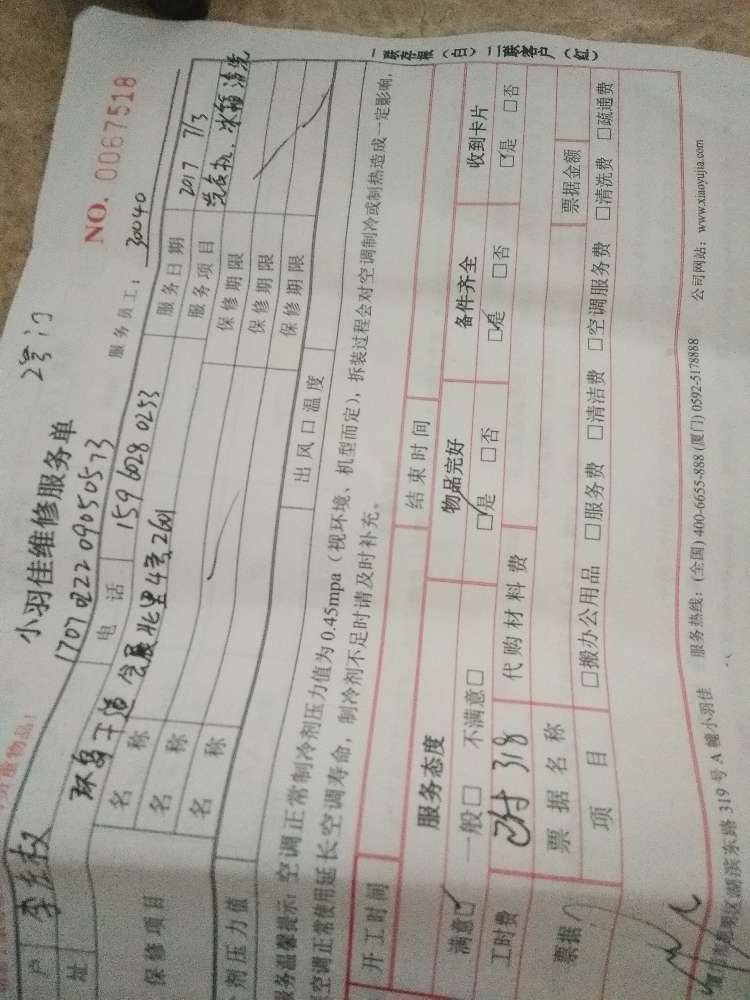 一联存根（白）二联客户（红）
NO. 0067518
2号门
小羽佳维修服务单
贵重物品！
1707022209050573
服务员工： 30040
户 李 权
电 话 159 6028 0253
服务日期 2017 7/3
址 环岛干道 会展北里4号2601
服务项目 洗衣机、冰箱清洗
保修项目
名 称
保修期限
名 称
保修期限
名 称
保修期限
剂压力值
出风口温度
服务温馨提示：空调正常制冷剂压力值为0.45mpa（视环境、机型而定），拆装过程会对空调制冷或制热造成一定影响，
空调正常使用延长空调寿命，制冷剂不足时请及时补充。
开工时间
结束时间
服务态度 物品完好 备件齐全 收到卡片
满意☑ 一般□ 不满意□ ☑是 □否 ☑是 □否 ☑是 □否
工时费 已付318 代购材料费
票据 票据名称 票据金额
项 目 □搬办公用品 □服务费 □清洁费 □空调服务费 □清洗费 □疏通费
湖滨东路319号A幢小羽佳 服务热线：(全国) 400-6655-888 (厦门) 0592-5178888 公司网站：www.xiaoyujia.com